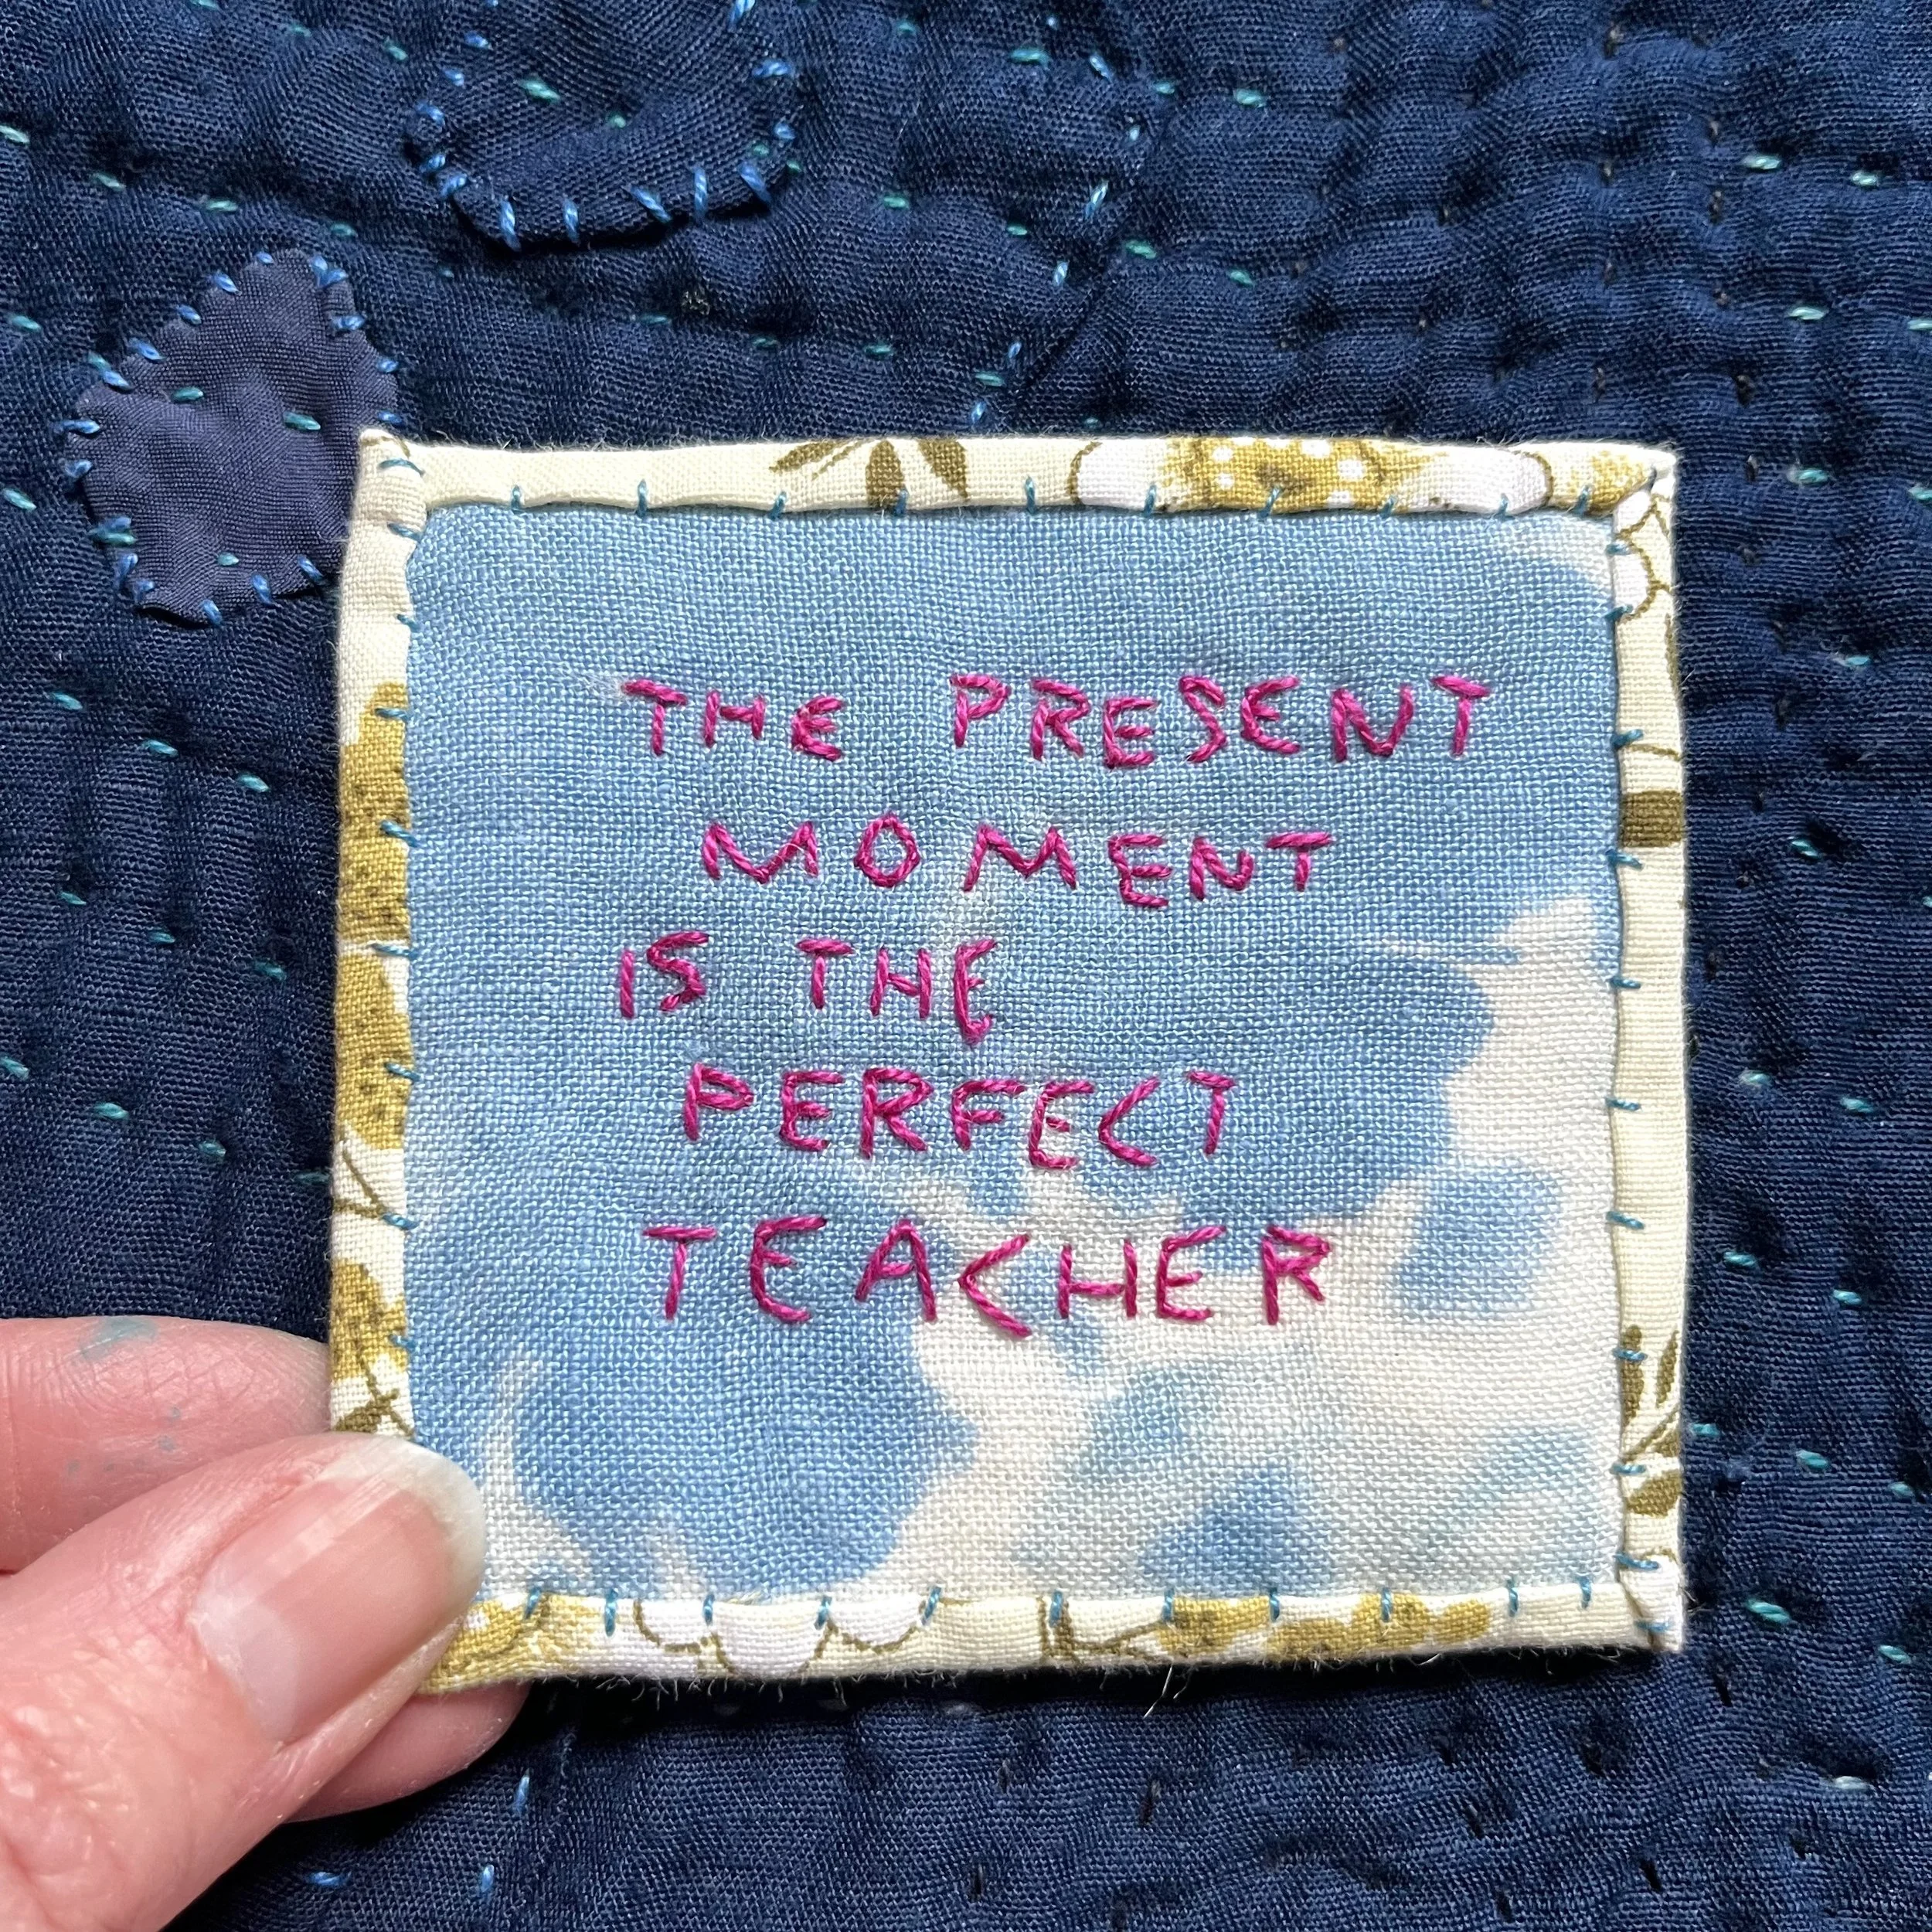 THE PRESENT
MOMENT
IS THE
PERFECT
TEACHER